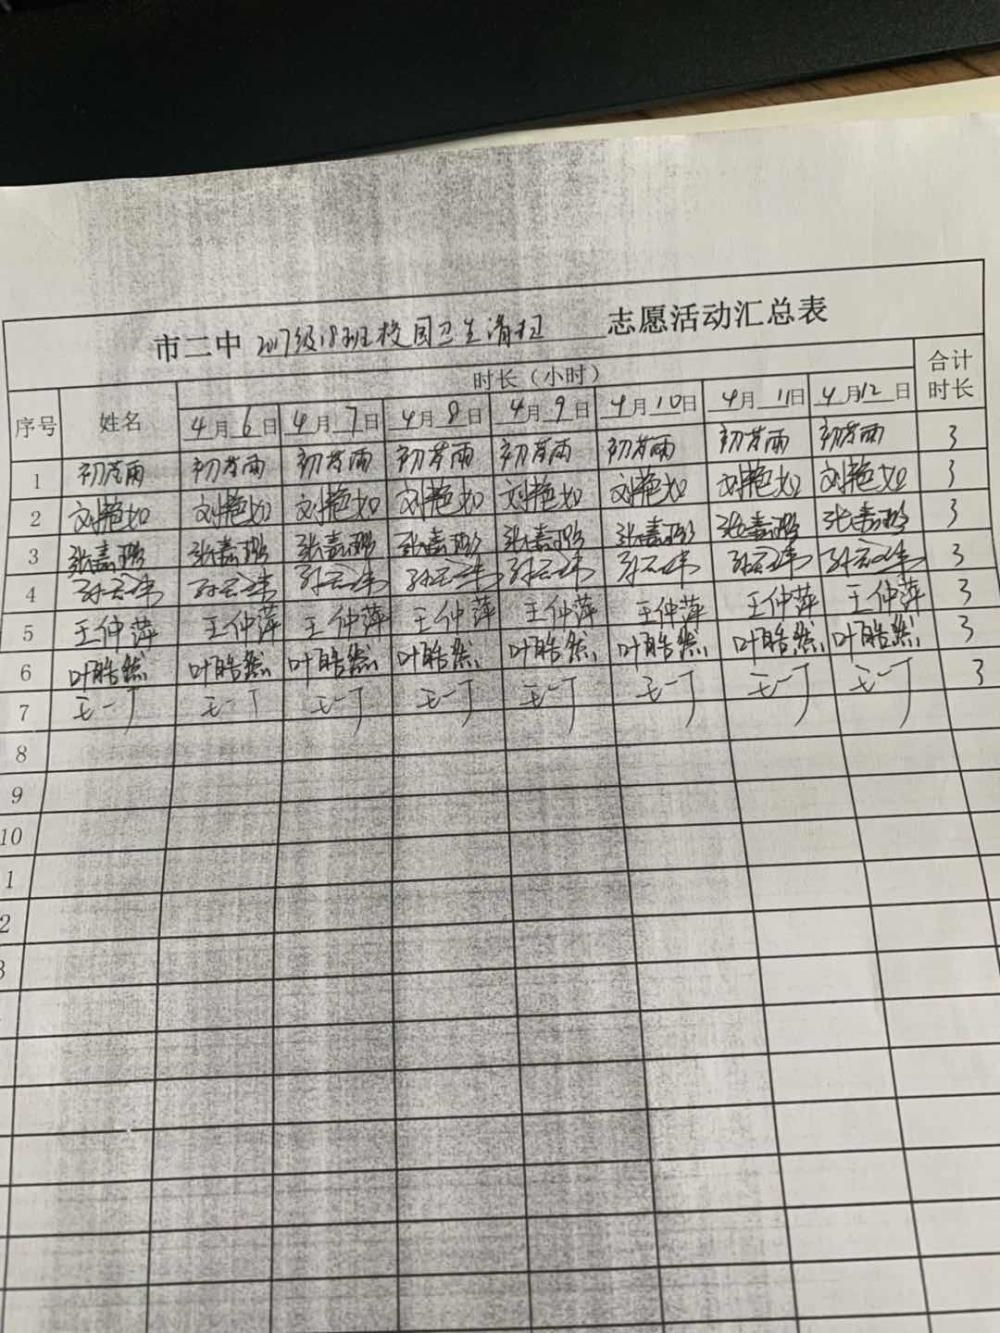 市二中 2017级18班校园卫生清扫 志愿活动汇总表
序号 姓名 时长（小时） 合计时长
4月6日 4月7日 4月8日 4月9日 4月10日 4月11日 4月12日
1 初芳雨 初芳雨 初芳雨 初芳雨 初芳雨 初芳雨 初芳雨 初芳雨 3
2 刘艳如 刘艳如 刘艳如 刘艳如 刘艳如 刘艳如 刘艳如 刘艳如 3
3 张嘉璐 张嘉璐 张嘉璐 张嘉璐 张嘉璐 张嘉璐 张嘉璐 张嘉璐 3
4 3
5 王仲萍 王仲萍 王仲萍 王仲萍 王仲萍 王仲萍 王仲萍 王仲萍 3
6 叶皓然 叶皓然 叶皓然 叶皓然 叶皓然 叶皓然 叶皓然 叶皓然 3
7 王一丁 王一丁 王一丁 王一丁 王一丁 王一丁 王一丁 王一丁 3
8
9
10
1
2
3